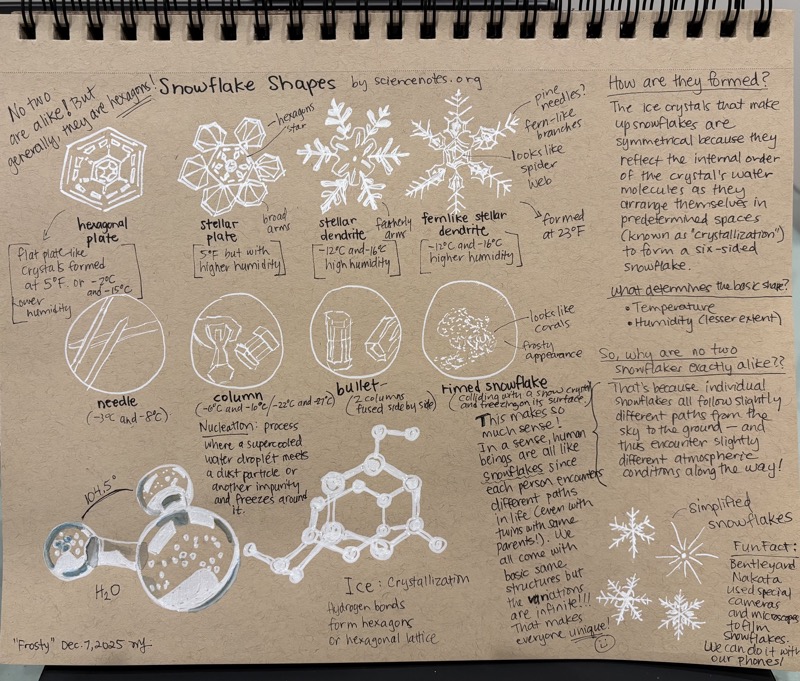 No two
are alike! But
generally, they are hexagons!
Snowflake Shapes by sciencenotes.org
hexagons
star
pine
needles?
fern-like
branches
looks like
spider
web
hexagonal
plate
stellar
plate
broad
arms
stellar
dendrite
feathery
arms
fernlike stellar
dendrite
formed
at 23°F
flat plate-like
crystals formed
at 5°F. or -2°C
and -15°C
Lower
humidity
5°F but with
higher humidity
-12°C and -16°C
high humidity
-12°C and -16°C
higher humidity
looks like
corals
frosty
appearance
needle
(-3°C and -8°C)
column
(-6°C and -10°C/-22°C and -27°C)
bullet
(2 columns
fused side by side)
rimed snowflake
colliding with a snow crystal
and freezing on its surface.
Nucleation: process
where a supercooled
water droplet meets
a dust particle or
another impurity
and freezes around
it.
104.5°
H2O
Ice: Crystallization
Hydrogen bonds
form hexagons
or hexagonal lattice
This makes so
much sense!
In a sense, human
beings are all like
snowflakes since
each person encounters
different paths
in life (even with
twins with same
parents!). We
all come with
basic same
structures but
the variations
are infinite!!!
That makes
everyone unique!
How are they formed?
The ice crystals that make
up snowflakes are
symmetrical because they
reflect the internal order
of the crystal's water
molecules as they
arrange themselves in
predetermined spaces
(known as "crystallization")
to form a six-sided
snowflake.
What determines the basic shape?
• Temperature
• Humidity (lesser extent)
So, why are no two
snowflakes exactly alike??
That's because individual
snowflakes all follow slightly
different paths from the
sky to the ground — and
thus encounter slightly
different atmospheric
conditions along the way!
simplified
snowflakes
Fun Fact:
Bentley and
Nakata
used special
cameras
and microscopes
to film
snowflakes.
We can do it with
our phones!
"Frosty" Dec. 7, 2025